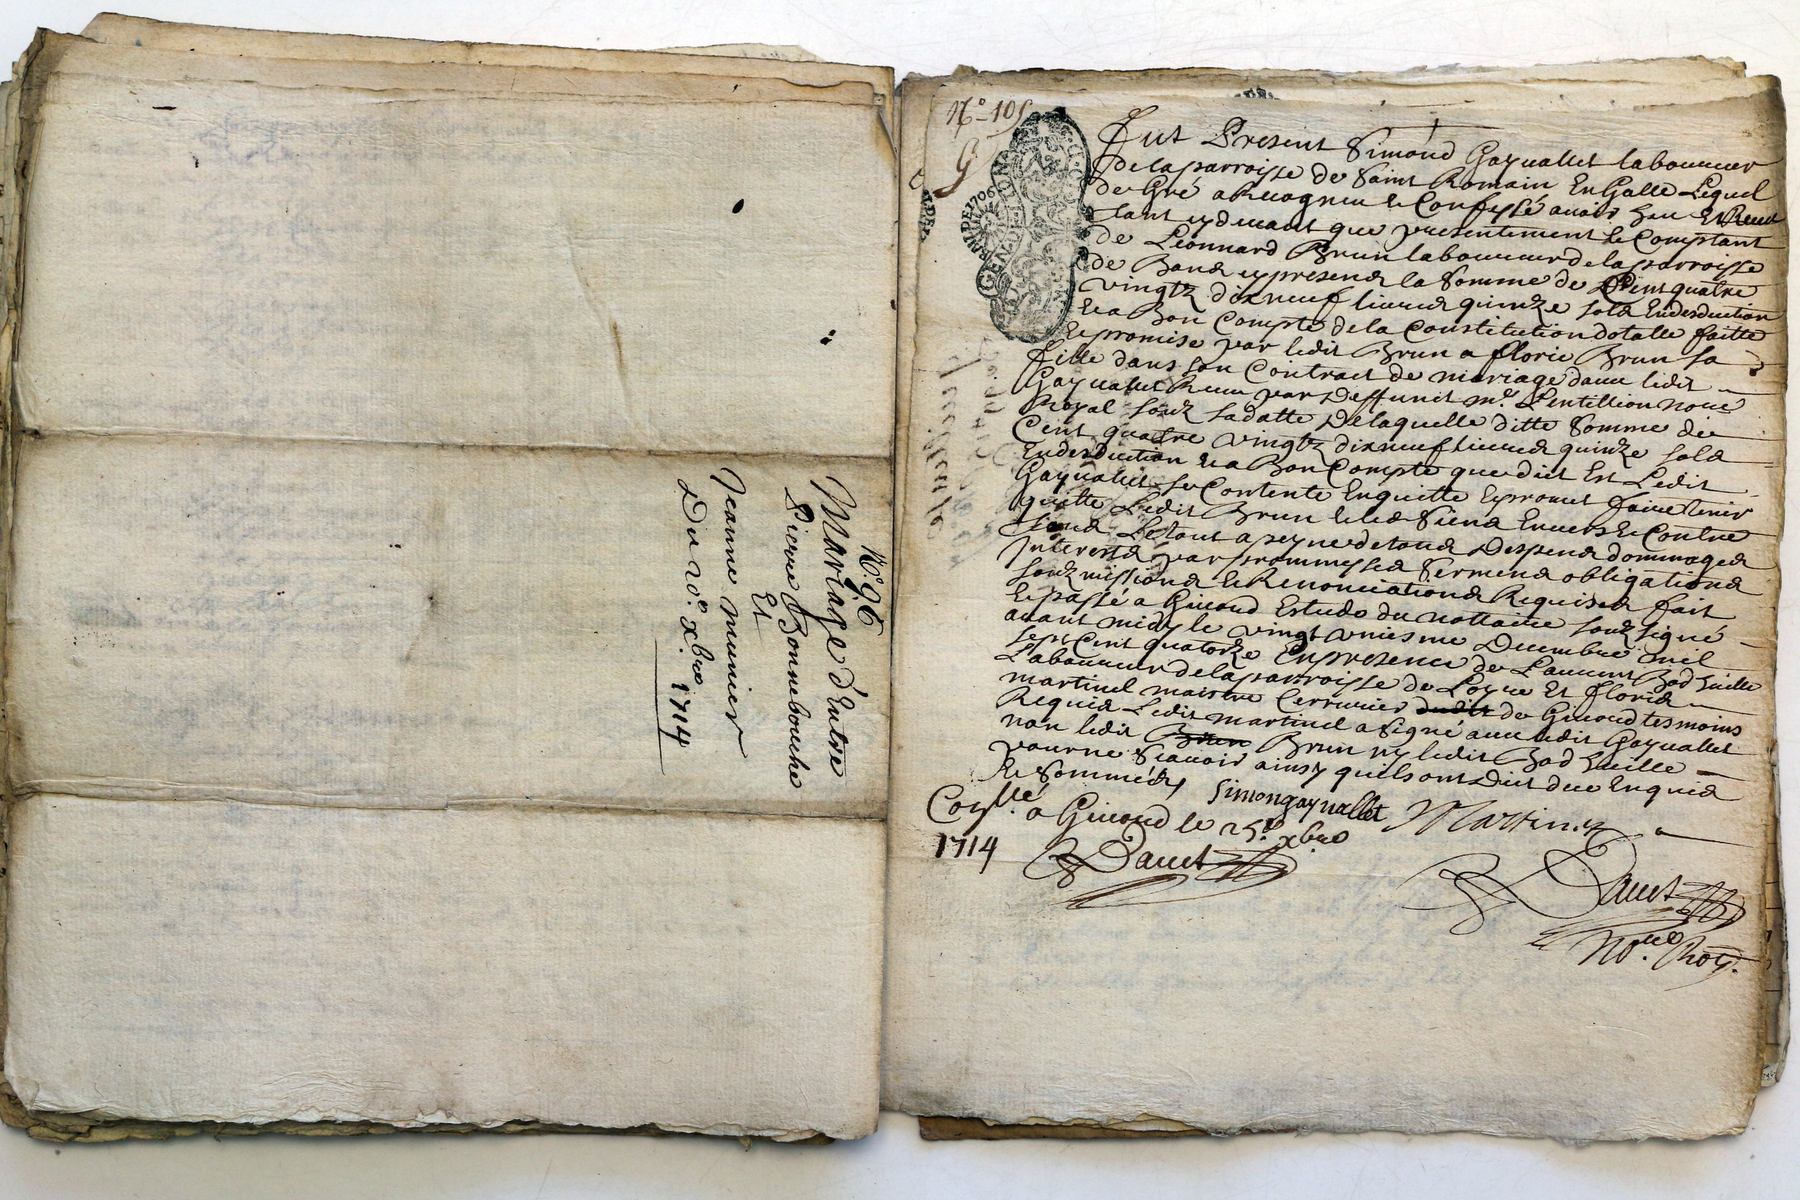 N.o 96
Mariage d'Entre
Pierre Bonnebouche
Et
Jeanne munier
Du 20.e xbre 1714
N.o 105
GEN
Fut Present Simond Gaynallet laboureur
de la parroisse de Saint Romain En Galle Lequel
de Gré a Recogneu & Confessé avoir heu & Receu
tant cy devant que presentement & Comptant
de Leonnard Brun laboureur de la parroisse
de Bans cy present la Somme de Cent quatre
vingtz dix neuf livres quinze solz En desduction
& a Bon Compte de la Constitution dotalle faitte
& promise par ledit Brun a florie Brun sa
fille dans son Contract de mariage avec ledit
Gaynallet Receu par deffunit m.e Pentillion no.re
Royal soubz sa datte de laquelle ditte Somme de
Cent quatre vingtz dix neuf livres quinze solz
En desduction & a Bon Compte que dict Est Ledit
Gaynallet se Contente En quitte & promet faire tenir
quitte Ledit Brun & les Siens Envers & Contre
tous Le tout a peyne de tous despens dommages
Interestz par promesses Serment obligations
soubzmissions & Renonciations Requises fait
& passé a Givord Estude du nottaire soubzsigné
avant midy le vingt uniesme Decembre mil
sept Cent quatorze En presence de Laurent Bad
Laboureur de la parroisse de Loyre Et floris
martinel maistre Cerrurier dudit de Givord tesmoins
Requis Ledit martinel a Signé avec ledit Gaynallet
non ledit Brun Brun ny ledit Bad
pour ne Scavoir ainsy quils ont Dict de ce Enquis
& Sommés
Simon gaynallet
Martinel
Con.llé a Givord le 25.e xbre
1714
Dauet
Dauet
No.re Roy.